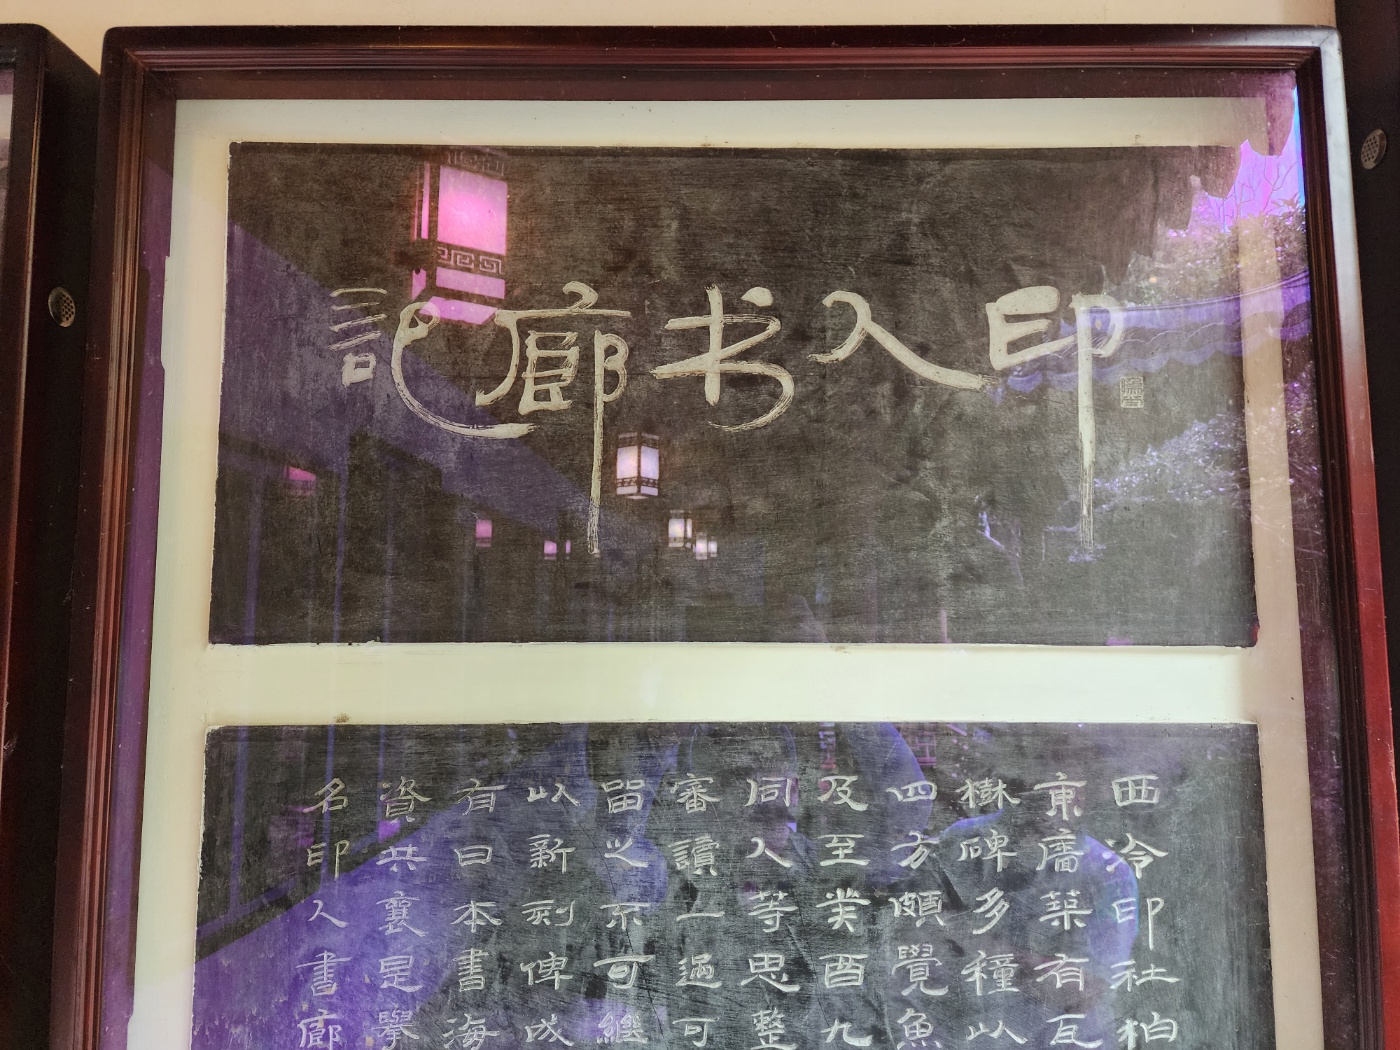 印人书廊記
西泠印社柏
東廧築有瓦
樹碑多種以
四方頗覺魚
及至癸酉九
同人等思整
審讀一過可
留之不可繼
以新刻俾成
有日本書海
資共襄是舉
名印人書廊